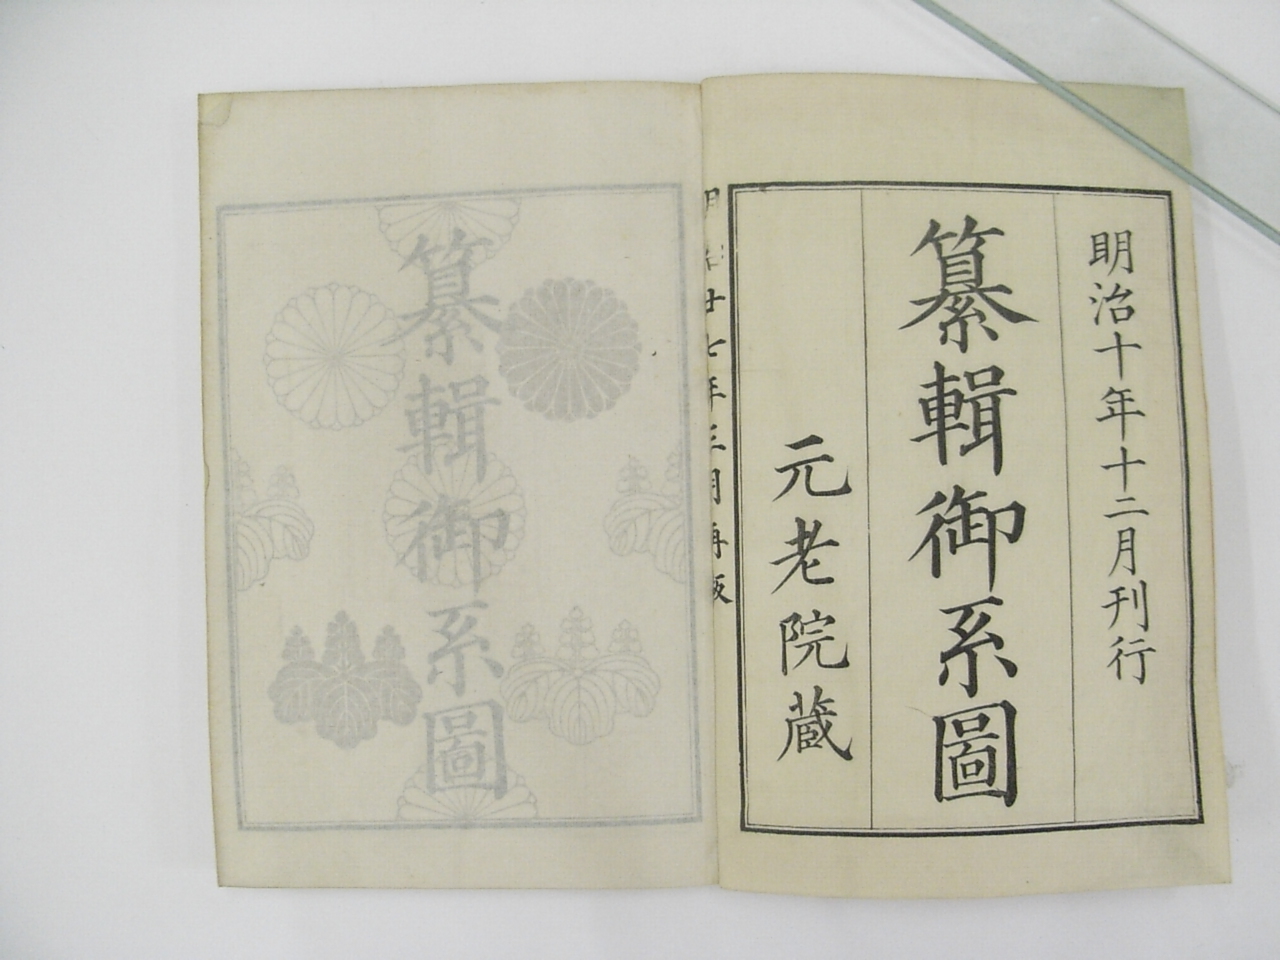 明治十年十二月刊行
纂輯御系圖
元老院蔵
明治廿七年三月再版
纂輯御系圖